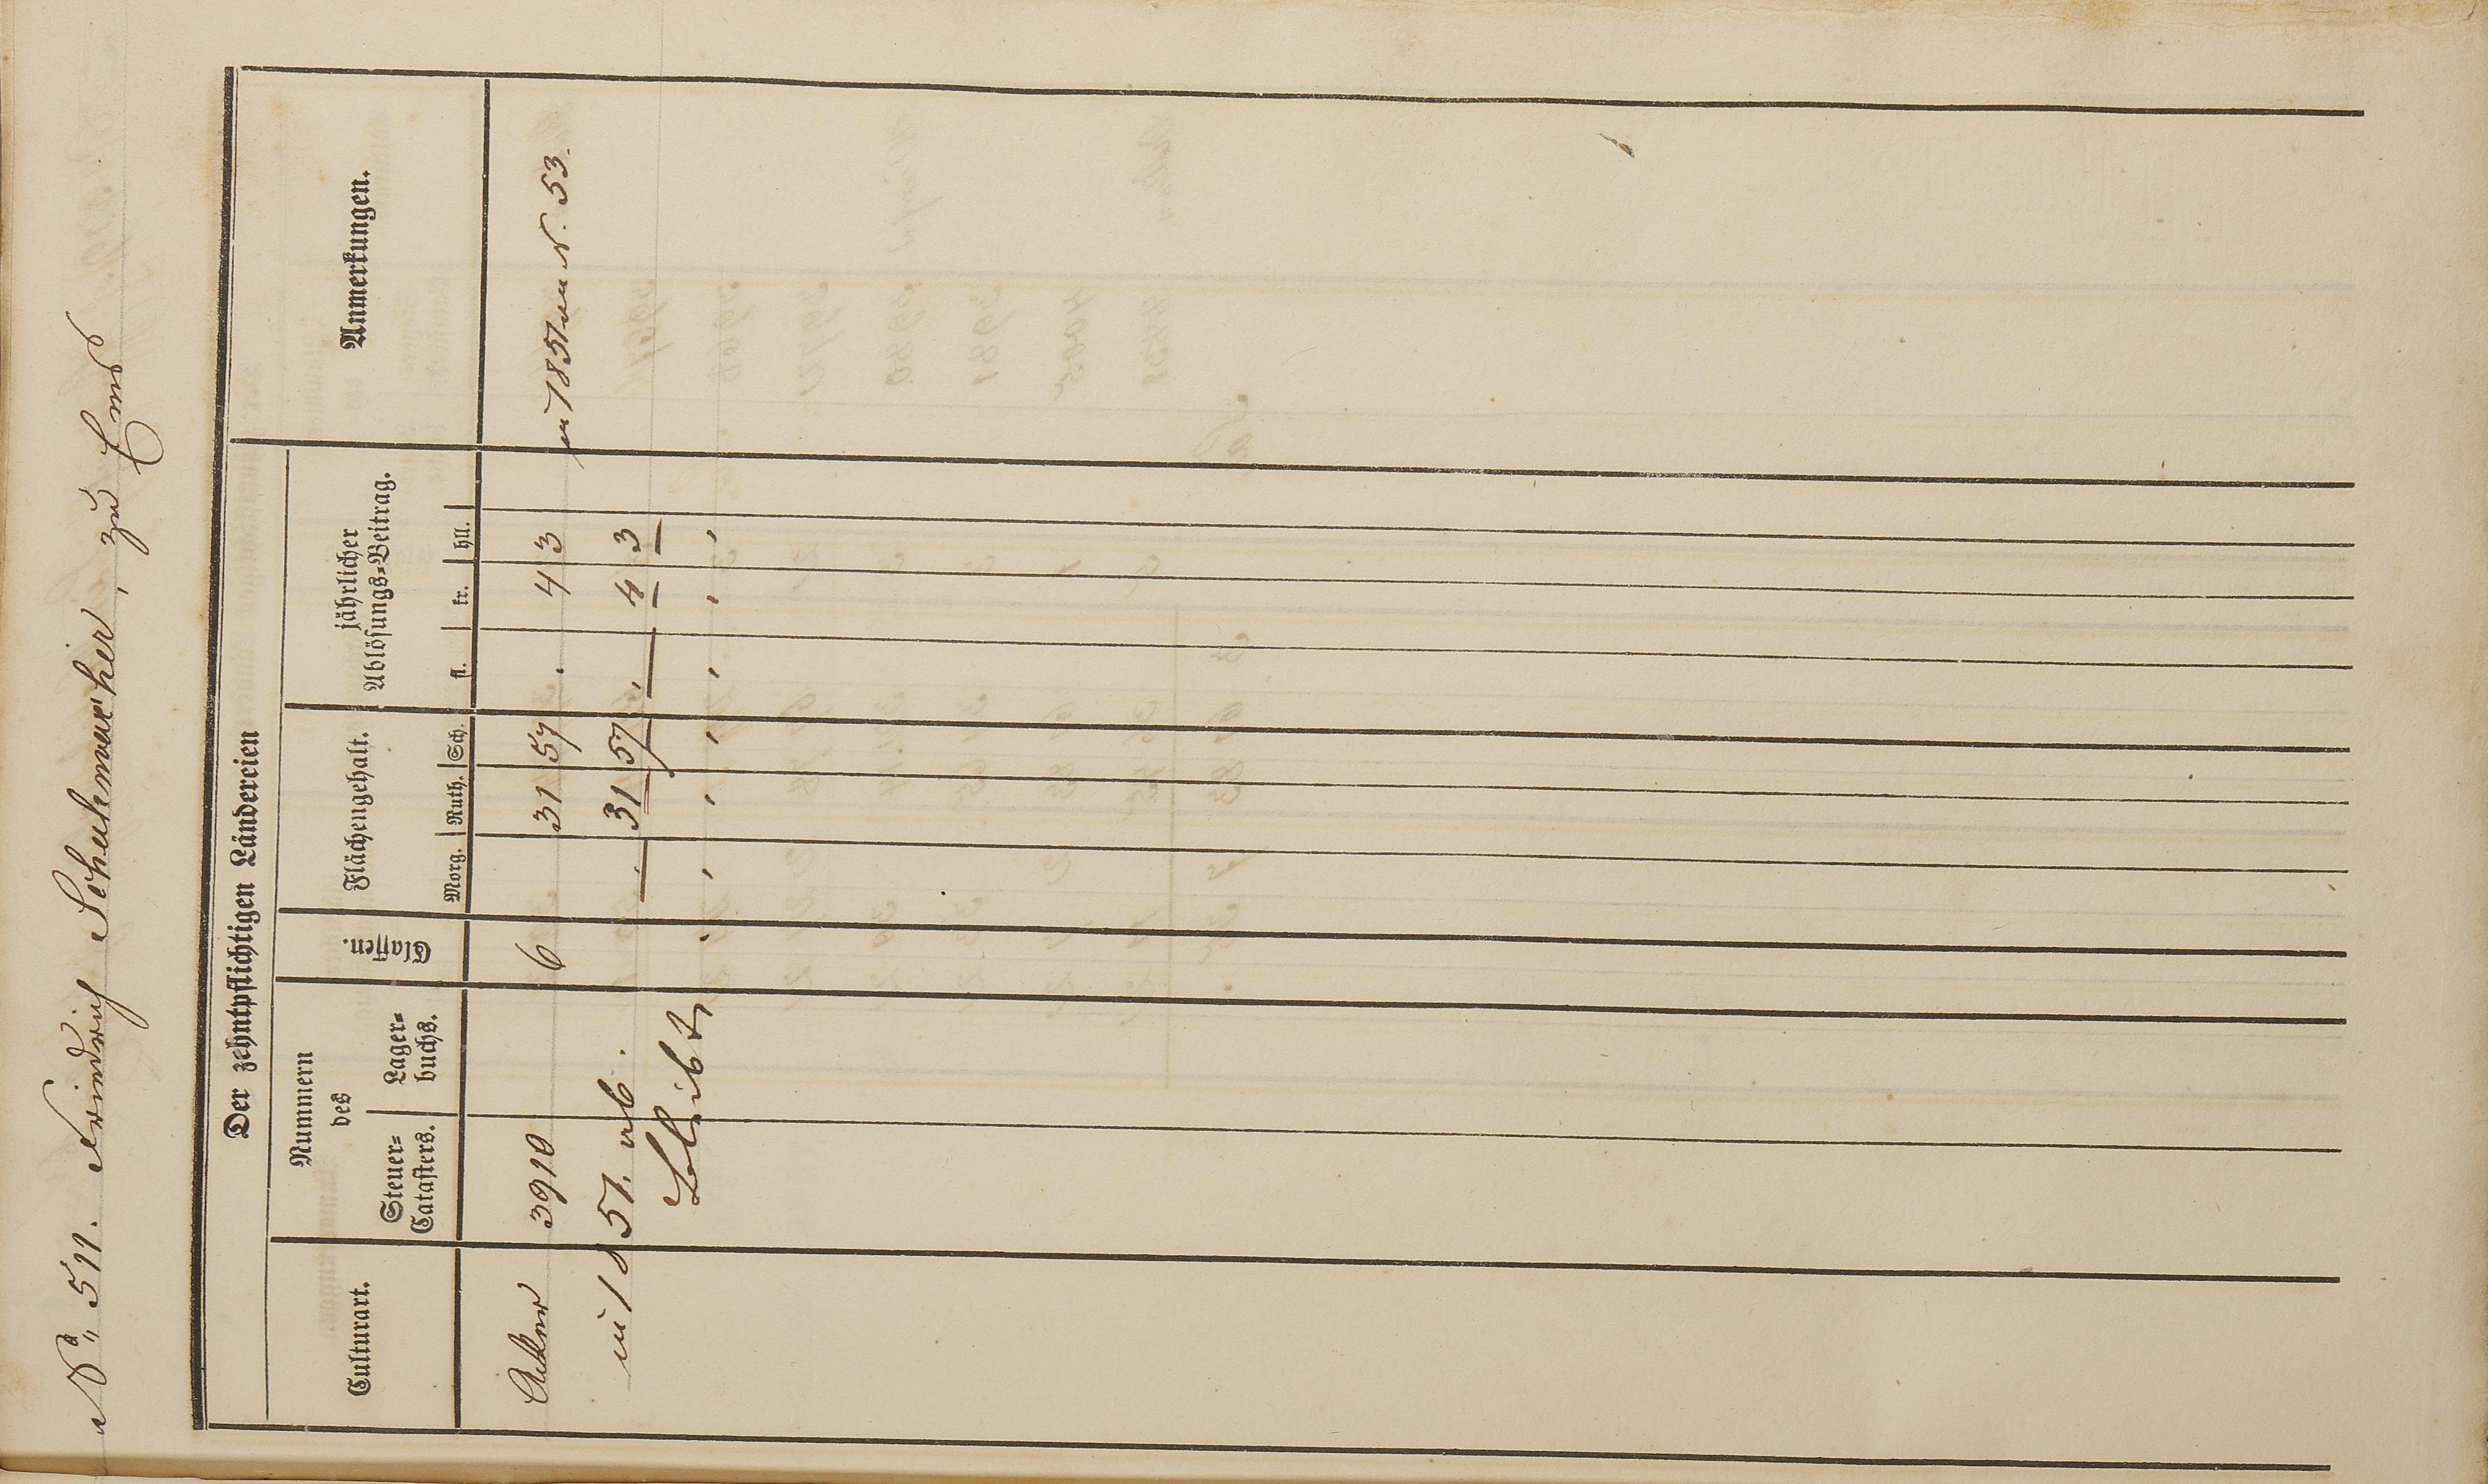 No. 511. Friedrich Schuhmacher, zu Ems
Der zehntpflichtigen Ländereien
Culturart.
Nummern
des
Steuer-
Catasters.
Lager-
buchs.
Classen.
Flächengehalt.
Morg. Ruth. Sch.
jährlicher
Ablösungs-Beitrag.
fl. kr. hll.
Anmerkungen.
Acker 3910 6 31 57 . 4 3 in 1857 von N. 53.
in 1857. ab. . 31 57 . 4 3
bleibt